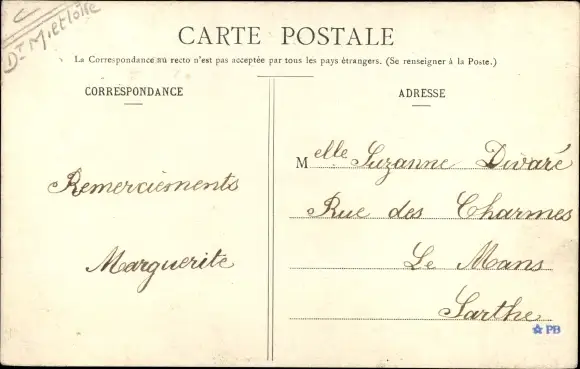 Dt M. et Loire
CARTE POSTALE
La Correspondance au recto n'est pas acceptée par tous les pays étrangers. (Se renseigner à la Poste.)
CORRESPONDANCE
Remerciements
Marguerite
ADRESSE
Melle Suzanne Divaré
Rue des Charmes
Le Mans
Sarthe
PB